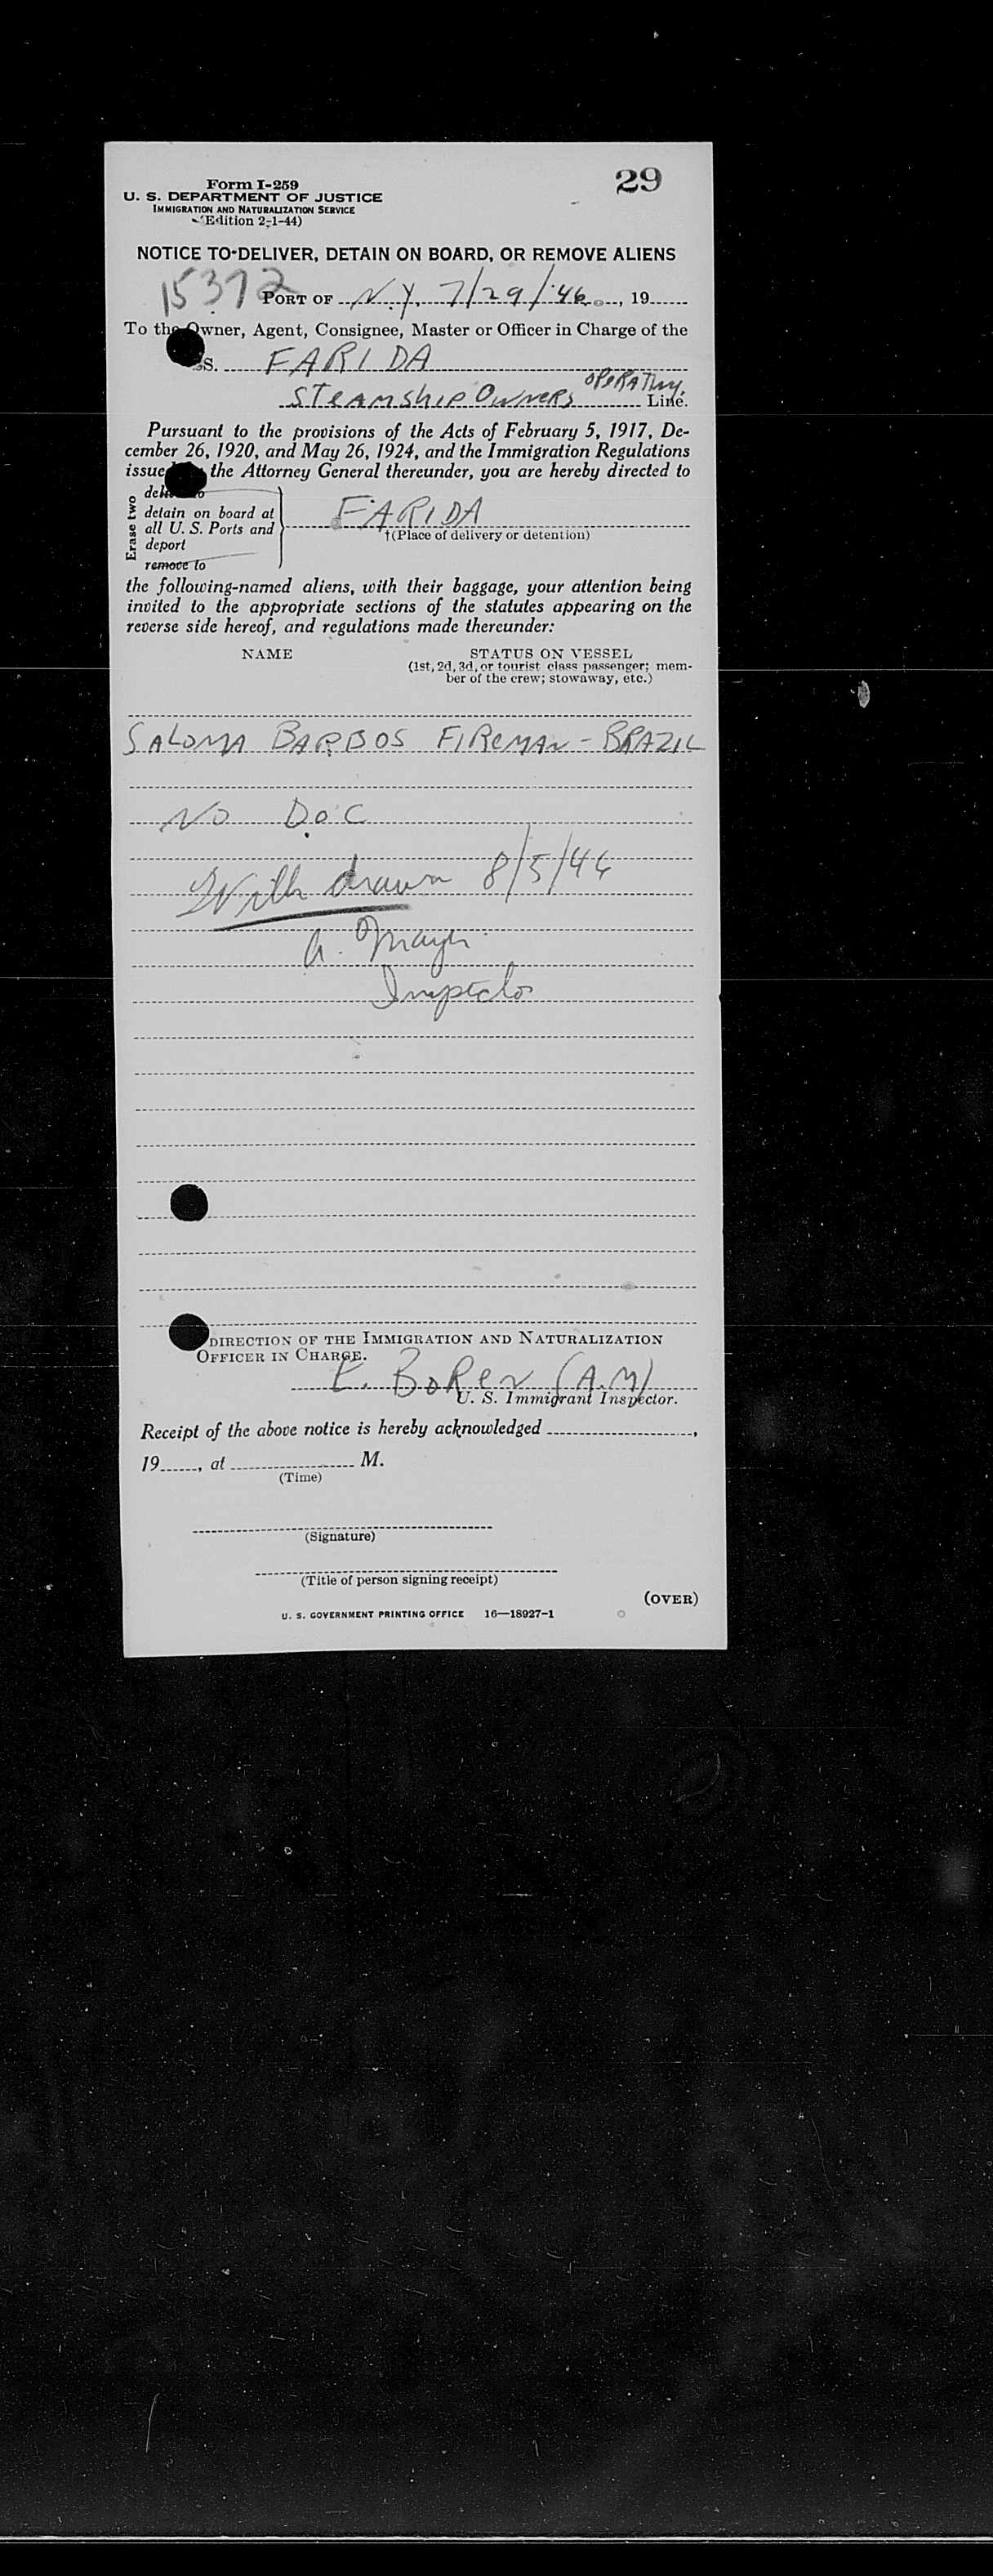 29
Form I-259
U. S. DEPARTMENT OF JUSTICE
IMMIGRATION AND NATURALIZATION SERVICE
(Edition 2-1-44)
NOTICE TO DELIVER, DETAIN ON BOARD, OR REMOVE ALIENS
15372 PORT OF N.Y. 7/29/46, 19
To the Owner, Agent, Consignee, Master or Officer in Charge of the
SS. FARIDA
STEAMSHIP OWNERS OPERATING Line.
Pursuant to the provisions of the Acts of February 5, 1917, De-
cember 26, 1920, and May 26, 1924, and the Immigration Regulations
issued the Attorney General thereunder, you are hereby directed to
Erase two
detain on board at
all U. S. Ports and
deport
remove to
FARIDA
†(Place of delivery or detention)
the following-named aliens, with their baggage, your attention being
invited to the appropriate sections of the statutes appearing on the
reverse side hereof, and regulations made thereunder:
NAME STATUS ON VESSEL
(1st, 2d, 3d, or tourist class passenger; mem-
ber of the crew; stowaway, etc.)
SALOMA BARBOS FIREMAN - BRAZIL
NO DOC
With drawn 8/5/46
A.
Inspector
DIRECTION OF THE IMMIGRATION AND NATURALIZATION
OFFICER IN CHARGE.
E. BOREN (A.M)
U. S. Immigrant Inspector.
Receipt of the above notice is hereby acknowledged ,
19 , at M.
(Time)
(Signature)
(Title of person signing receipt)
(OVER)
U. S. GOVERNMENT PRINTING OFFICE 16—18927-1